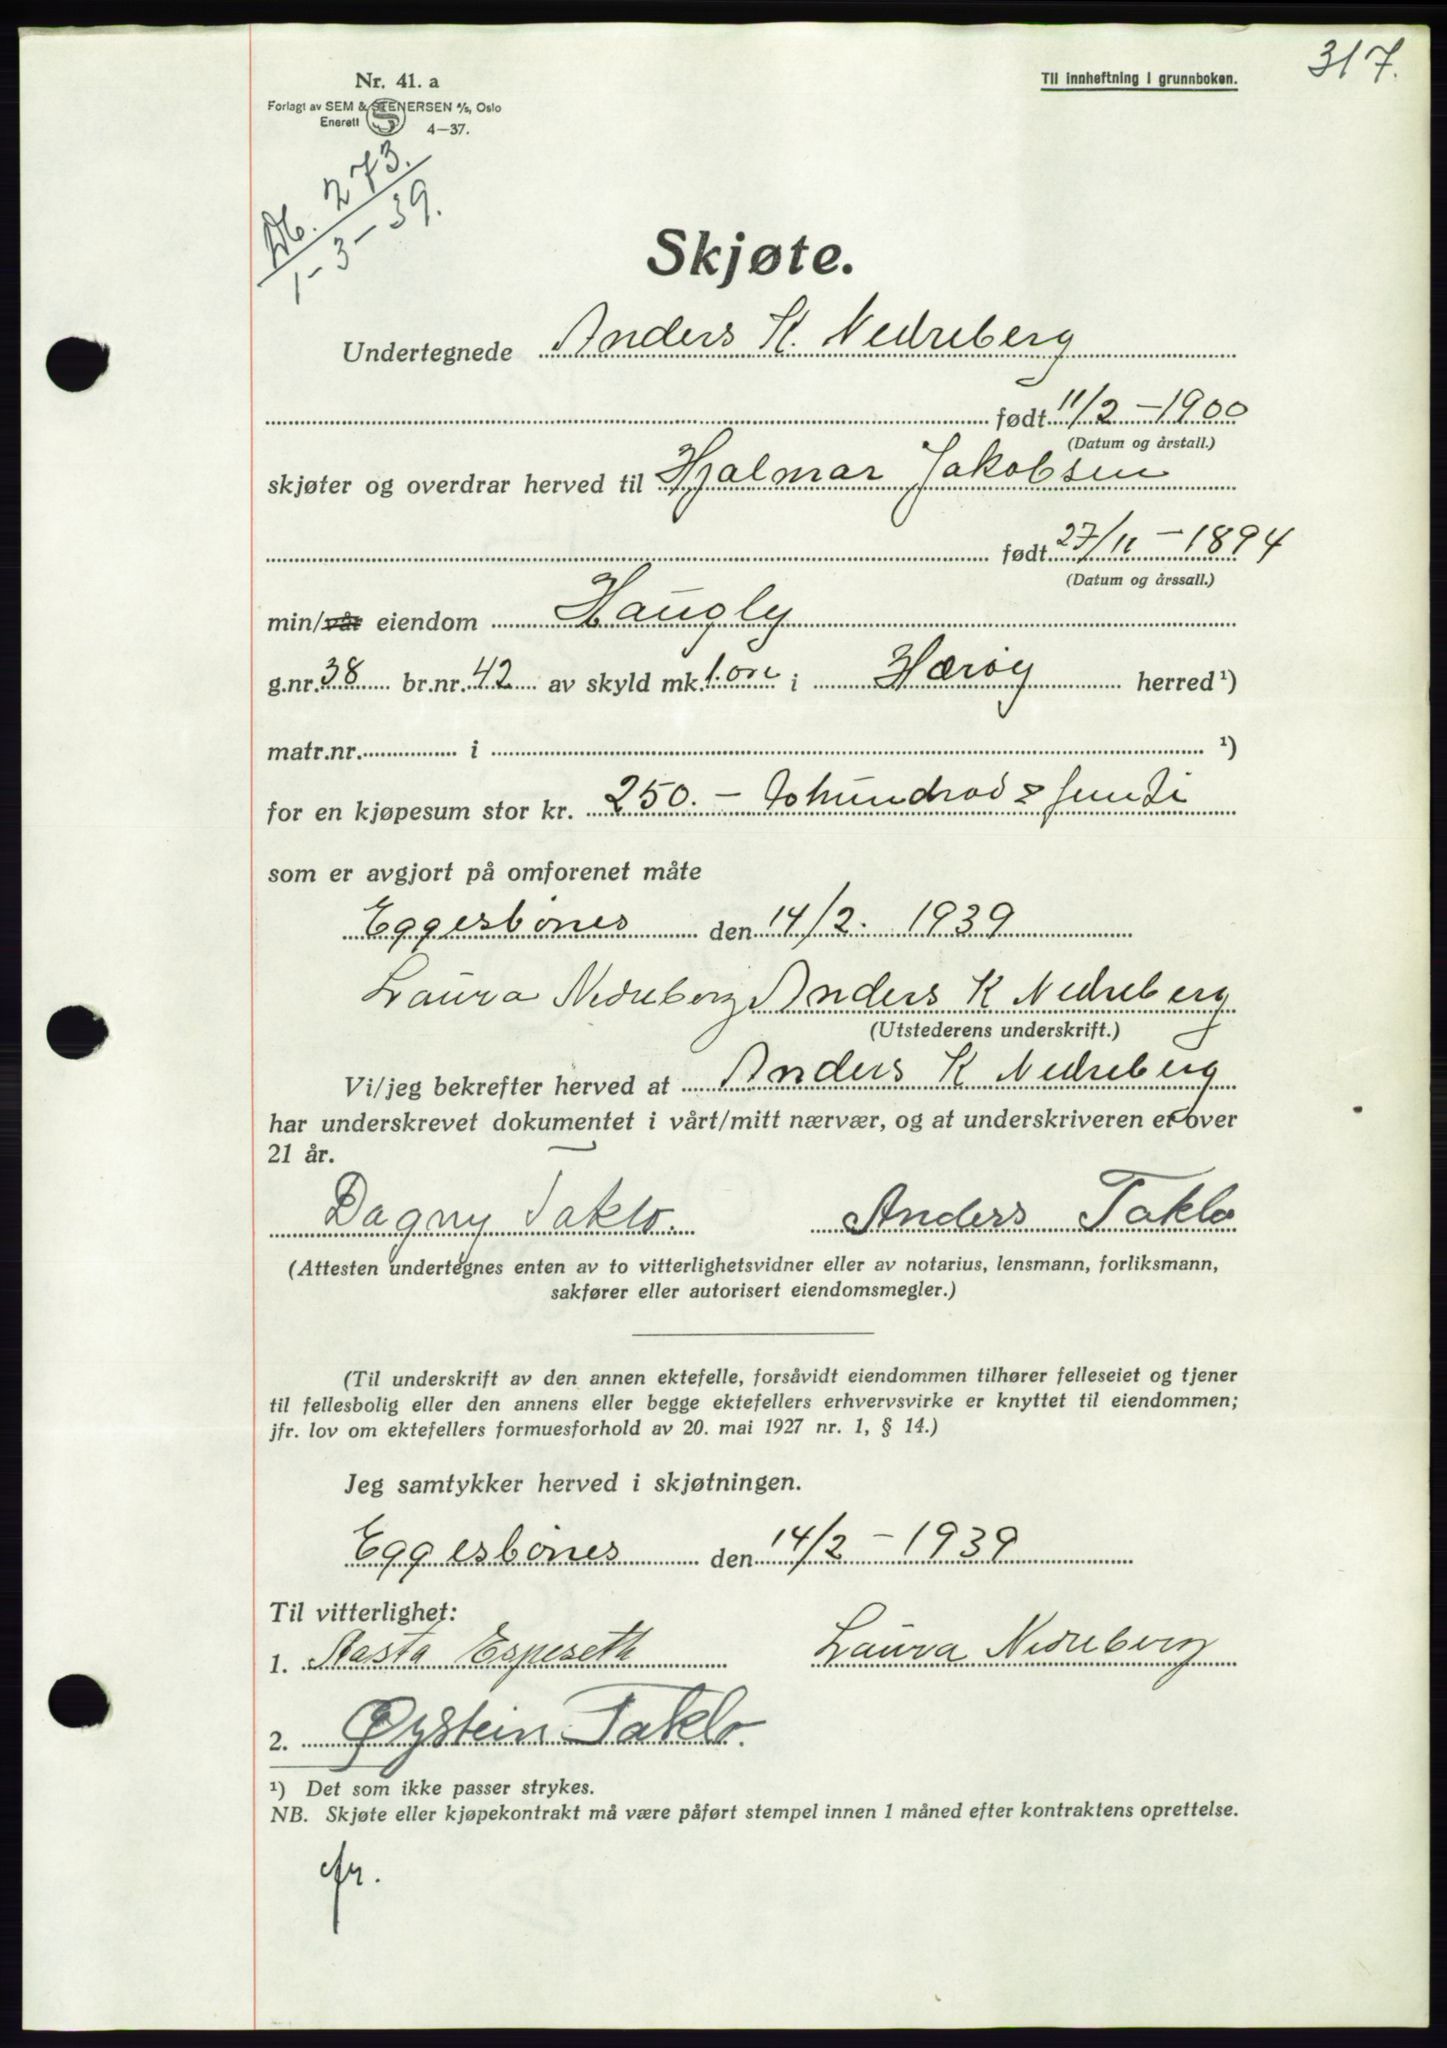 317.
Nr. 41. a
Til innheftning i grunnboken.
Forlagt av SEM & STENERSEN A/S, Oslo
Enerett
4—37.
Db. 273.
1-3-39.
Skjøte.
Undertegnede Anders K. Nedreberg
født 11/2 - 1900
(Datum og årstall.)
skjøter og overdrar herved til Hjalmar Jakobsen
født 27/11 - 1894
(Datum og årssall.)
min/vår eiendom Haugly
g.nr. 38 br.nr. 42 av skyld mk. 1. øre i Herøy herred ¹)
matr.nr. i ¹)
for en kjøpesum stor kr. 250. - tohundrod & femti
som er avgjort på omforenet måte
Eggesbönes den 14/2. 1939
Laura Nedreberg Anders K Nedreberg
(Utstederens underskrift.)
Vi/jeg bekrefter herved at Anders K Nedreberg
har underskrevet dokumentet i vårt/mitt nærvær, og at underskriveren er over
21 år.
Dagny Taklo. Anders Taklo
(Attesten undertegnes enten av to vitterlighetsvidner eller av notarius, lensmann, forliksmann,
sakfører eller autorisert eiendomsmegler.)
(Til underskrift av den annen ektefelle, forsåvidt eiendommen tilhører felleseiet og tjener
til fellesbolig eller den annens eller begge ektefellers erhvervsvirke er knyttet til eiendommen;
jfr. lov om ektefellers formuesforhold av 20. mai 1927 nr. 1, § 14.)
Jeg samtykker herved i skjøtningen.
Eggesbönes den 14/2 - 1939
Til vitterlighet:
1. Aasta Espeseth Laura Nedreberg
2. Øystein Taklo.
¹) Det som ikke passer strykes.
NB. Skjøte eller kjøpekontrakt må være påført stempel innen 1 måned efter kontraktens oprettelse.